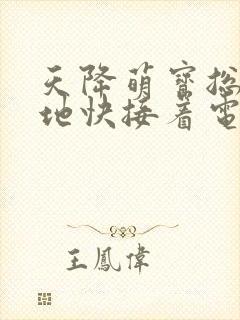 天降萌寶總
地快接着電
王鳳偉